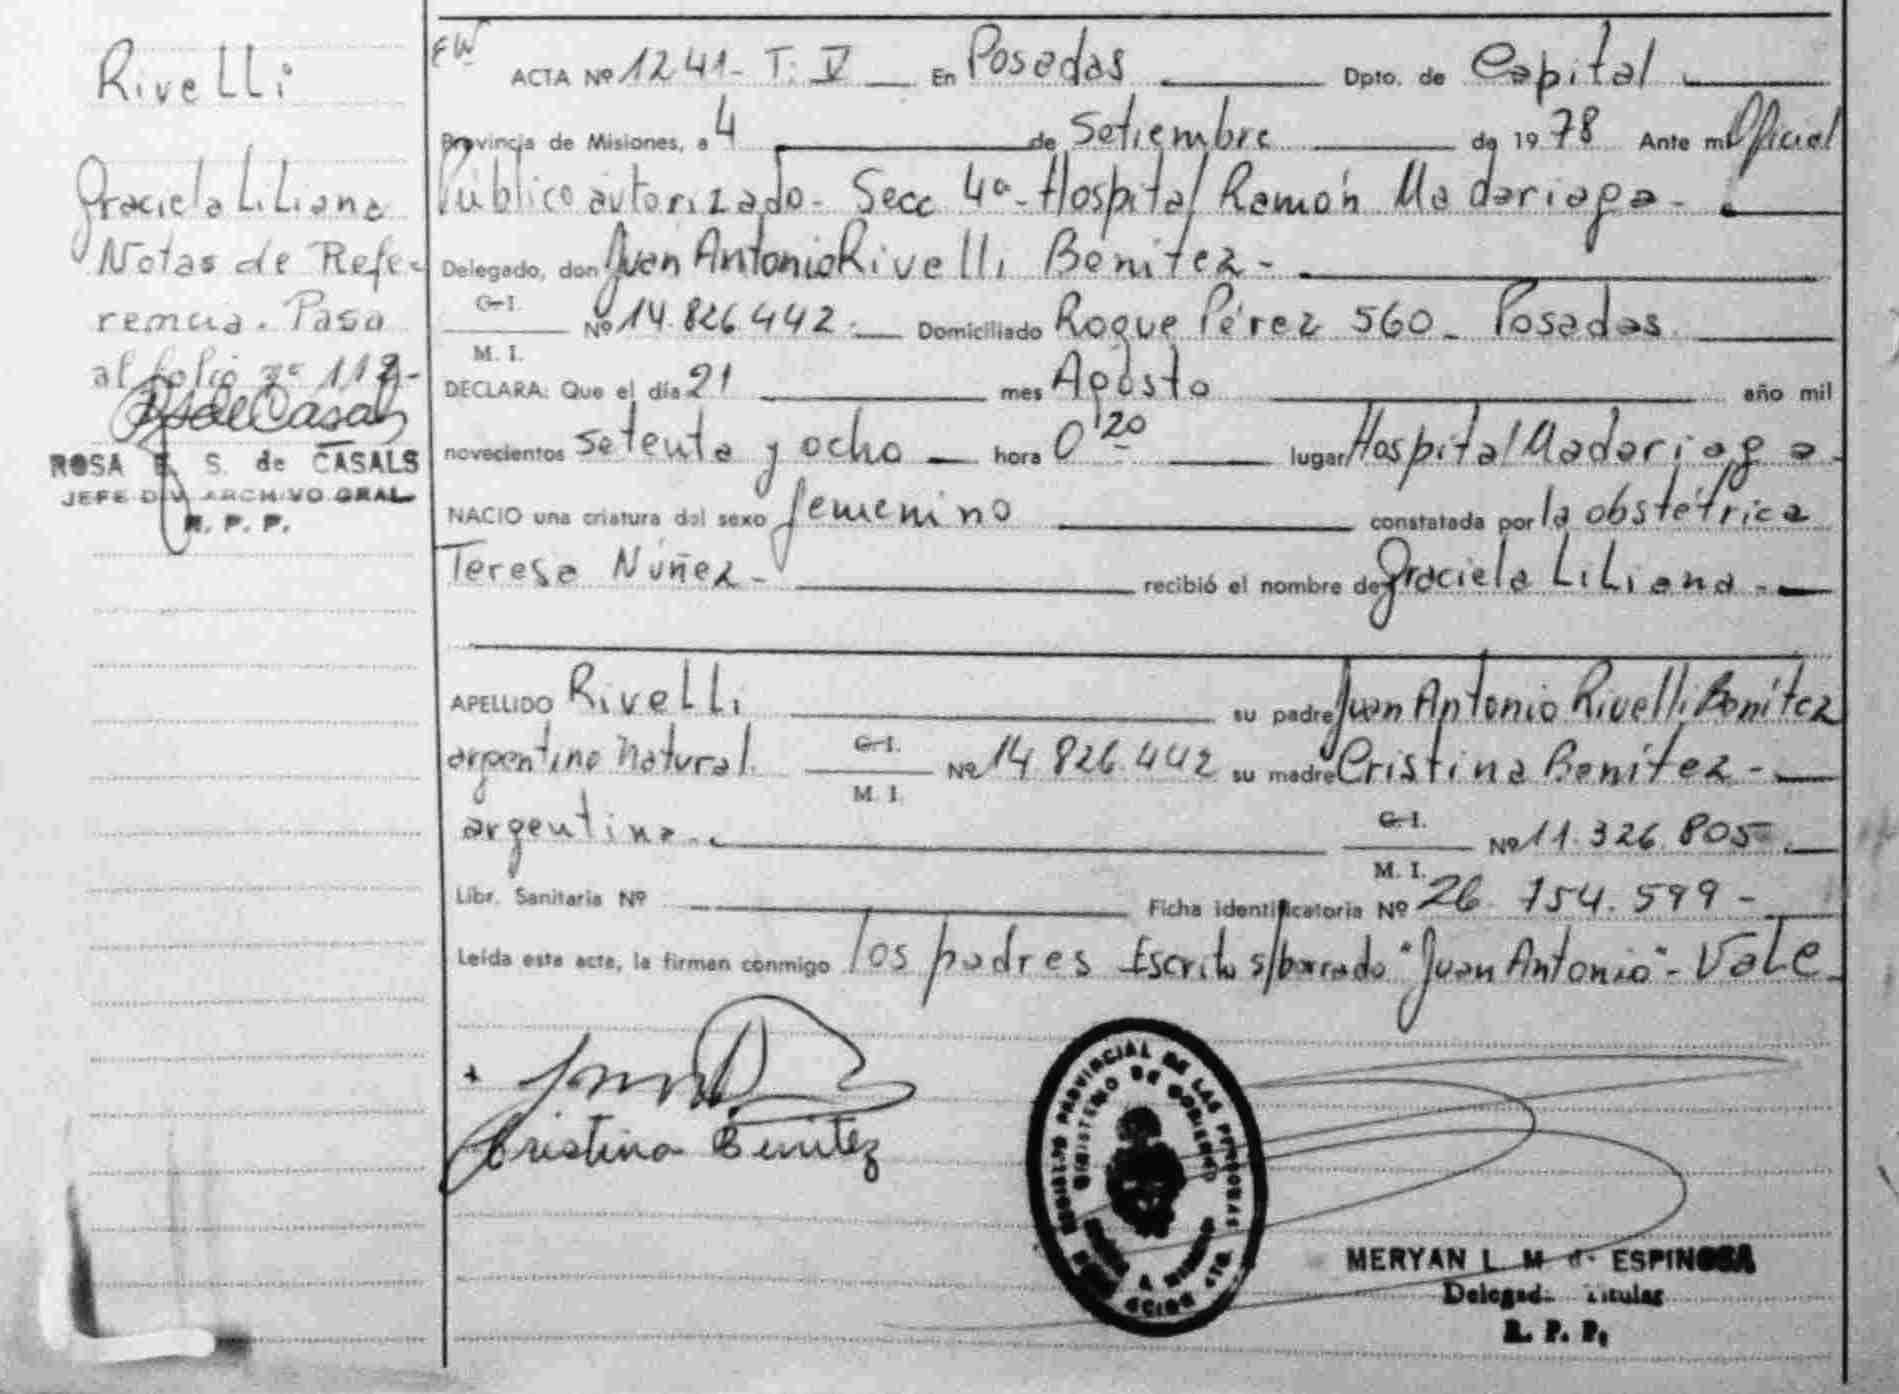 Rivelli
Graciela Liliana
Notas de Refe-
rencia. Pasa
al folio nº 112-
ROSA E. S. de CASALS
JEFE DIV ARCHIVO GRAL
R. P. P.
EW
ACTA Nº 1241- T: V En Posadas Dpto. de Capital
Provincia de Misiones, a 4 de Setiembre de 1978 Ante mi Oficial
Público autorizado- Secc 4ª- Hospital Ramón Madariaga-
Delegado, don Juan Antonio Rivelli Benitez-
C. I.
Nº 14.826.442- Domiciliado Roque Pérez 560- Posadas
M. I.
DECLARA: Que el día 21 mes Agosto año mil
novecientos setenta y ocho hora 0'20 lugar Hospital Madariaga-
NACIO una criatura del sexo femenino constatada por la obstétrica
Teresa Núñez- recibió el nombre de Graciela Liliana-
APELLIDO Rivelli su padre Juan Antonio Rivelli Benítez
argentino natural C. I. Nº 14.826.442 su madre Cristina Benítez-
M. I.
argentina- C. I. Nº 11.326.805
M. I.
Libr. Sanitaria Nº Ficha identificatoria Nº 26.754.599-
Leída esta acta, la firman conmigo los padres Escrito s/borrado "Juan Antonio"- Vale
Cristina Benitez
REGISTRO PROVINCIAL DE LAS PERSONAS
MINISTERIO DE GOBIERNO
MERYAN L. M. d. ESPINOSA
Delegada Titular
R. P. P.